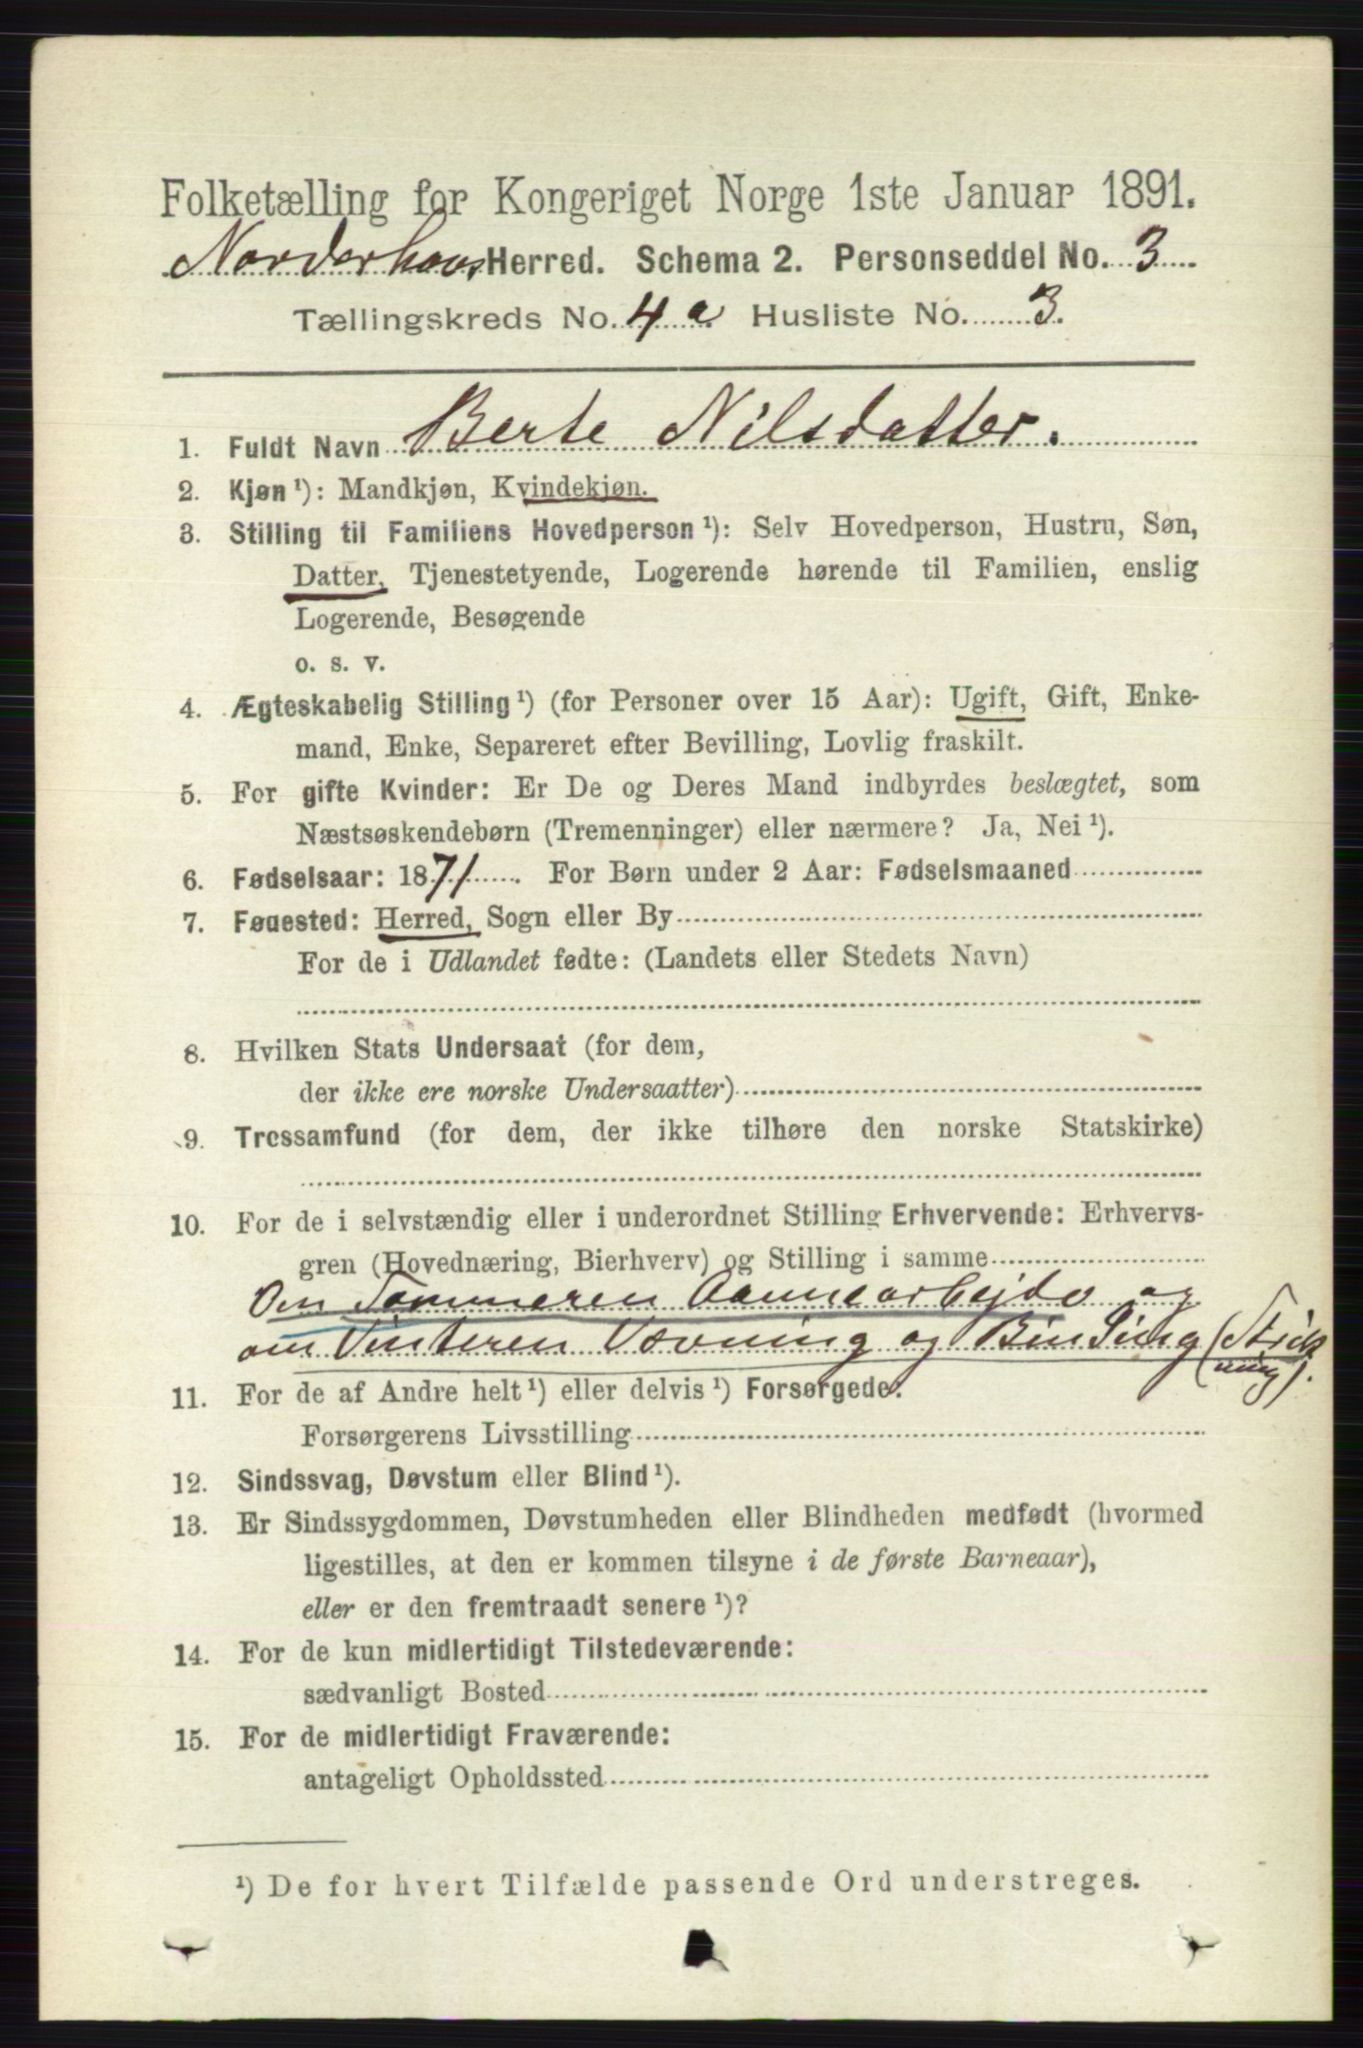 Folketælling for Kongeriget Norge 1ste Januar 1891.
Norderhovs Herred. Schema 2. Personseddel No. 3
Tællingskreds No. 4a Husliste No. 3.
1. Fuldt Navn Berte Nilsdatter.
2. Kjøn ¹): Mandkjøn, Kvindekjøn.
3. Stilling til Familiens Hovedperson ¹): Selv Hovedperson, Hustru, Søn,
Datter, Tjenestetyende, Logerende hørende til Familien, enslig
Logerende, Besøgende
o. s. v.
4. Ægteskabelig Stilling ¹) (for Personer over 15 Aar): Ugift, Gift, Enke-
mand, Enke, Separeret efter Bevilling, Lovlig fraskilt.
5. For gifte Kvinder: Er De og Deres Mand indbyrdes beslægtet, som
Næstsøskendebørn (Tremenninger) eller nærmere? Ja, Nei ¹).
6. Fødselsaar: 1871. For Børn under 2 Aar: Fødselsmaaned
7. Føuested: Herred, Sogn eller By
For de i Udlandet fødte: (Landets eller Stedets Navn)
8. Hvilken Stats Undersaat (for dem,
der ikke ere norske Undersaatter)
9. Trossamfund (for dem, der ikke tilhøre den norske Statskirke)
10. For de i selvstændig eller i underordnet Stilling Erhvervende: Erhvervs-
gren (Hovednæring, Bierhverv) og Stilling i samme
Om Sommeren Aannearbejde og
om Vinteren Vævning og Binding (Strik
ning).
11. For de af Andre helt ¹) eller delvis ¹) Forsørgede:
Forsørgerens Livsstilling
12. Sindssvag, Døvstum eller Blind ¹).
13. Er Sindssygdommen, Døvstumheden eller Blindheden medfødt (hvormed
ligestilles, at den er kommen tilsyne i de første Barneaar),
eller er den fremtraadt senere ¹)?
14. For de kun midlertidigt Tilstedeværende:
sædvanligt Bosted
15. For de midlertidigt Fraværende:
antageligt Opholdssted
¹) De for hvert Tilfælde passende Ord understreges.